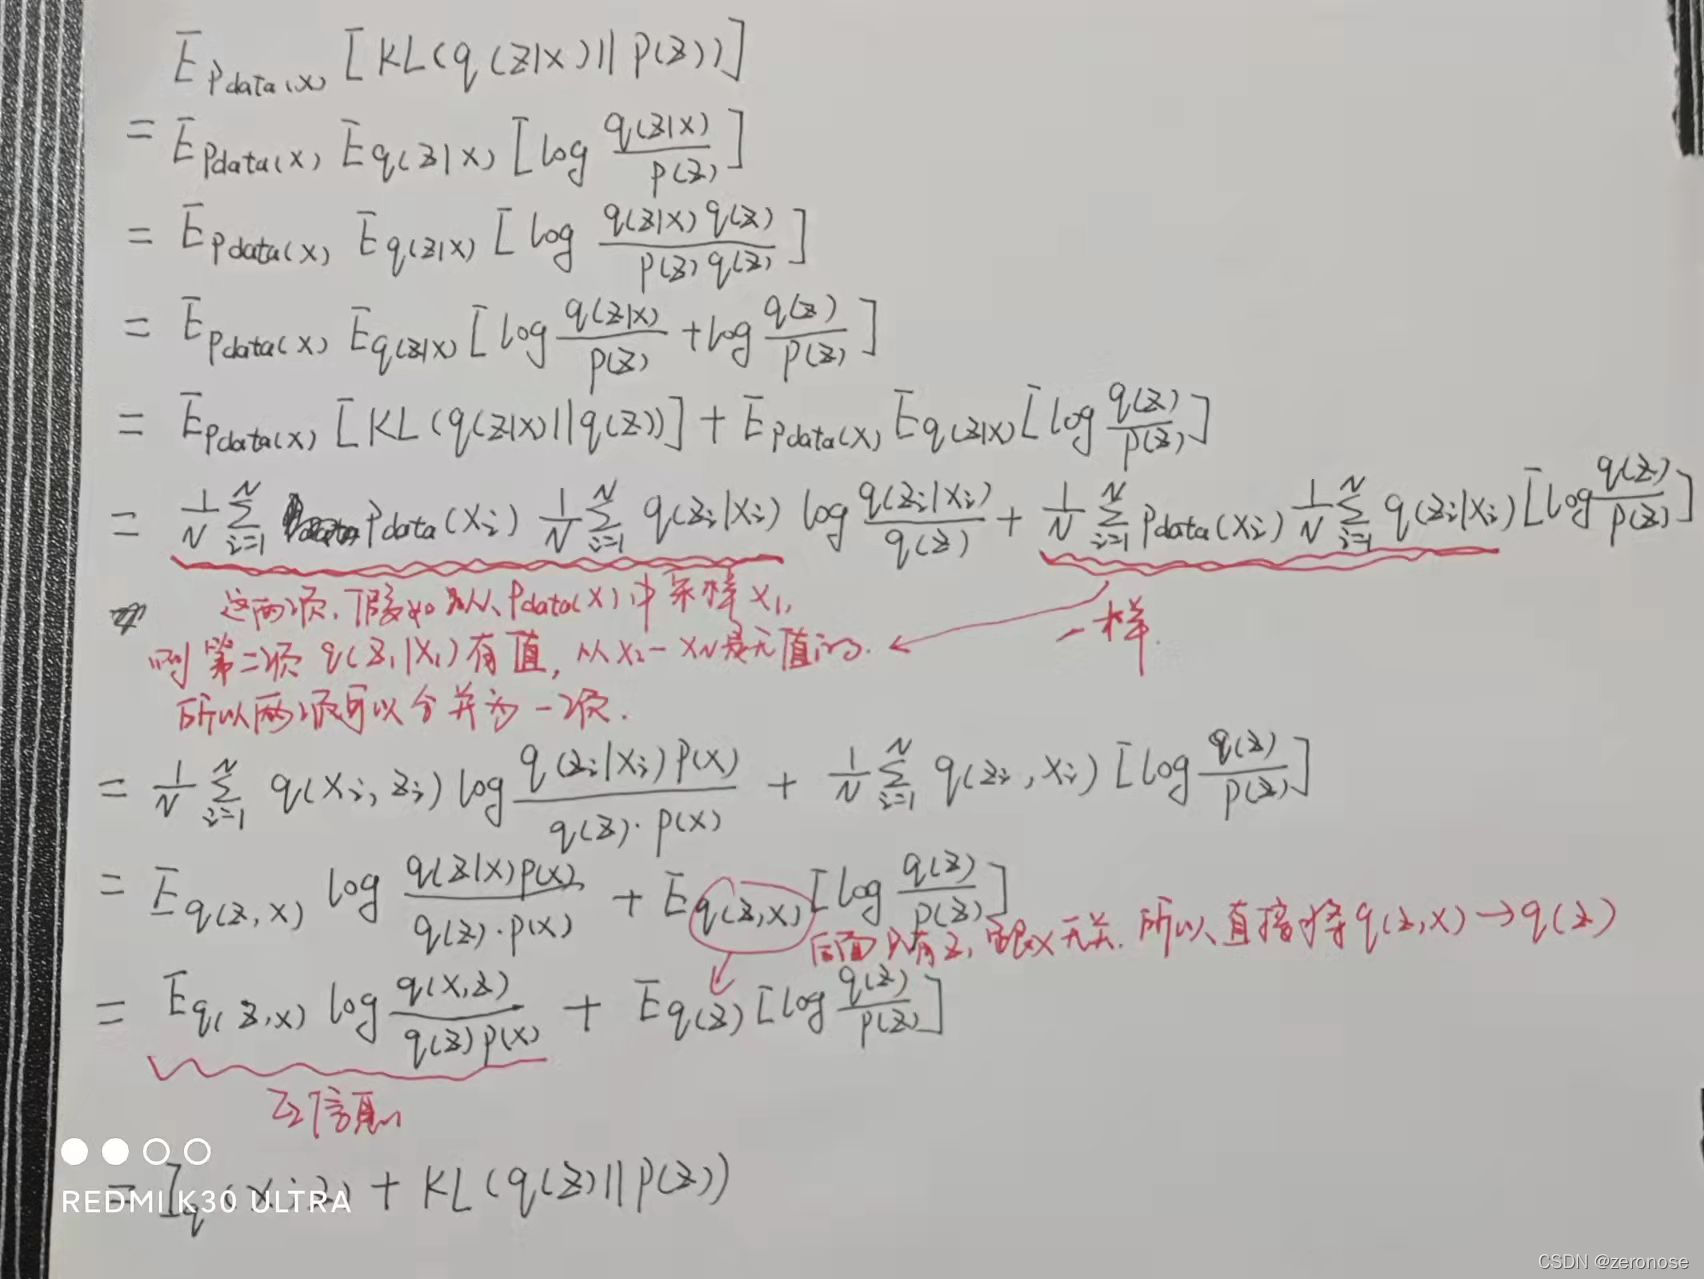 E_{Pdata(x)} [KL(q(z|x)||p(z))]
= E_{Pdata(x)} E_{q(z|x)} [log \frac{q(z|x)}{p(z)}]
= E_{Pdata(x)} E_{q(z|x)} [log \frac{q(z|x)q(z)}{p(z)q(z)}]
= E_{Pdata(x)} E_{q(z|x)} [log \frac{q(z|x)}{p(z)} + log \frac{q(z)}{p(z)}]
= E_{Pdata(x)} [KL(q(z|x)||q(z))] + E_{Pdata(x)} E_{q(z|x)} [log \frac{q(z)}{p(z)}]
= \frac{1}{N} \sum_{i=1}^{N} Pdata(xi) \frac{1}{N} \sum_{i=1}^{N} q(zi|xi) log \frac{q(zi|xi)}{q(z)} + \frac{1}{N} \sum_{i=1}^{N} Pdata(xi) \frac{1}{N} \sum_{i=1}^{N} q(zi|xi) [log \frac{q(z)}{p(z)}]
这两项,假如从Pdata(x)中采样x1,
一样.
则第二项q(z1|x1)有值,从x2-xN是无值的.
所以两项可以合并为一项.
= \frac{1}{N} \sum_{i=1}^{N} q(xi,zi) log \frac{q(zi|xi)p(x)}{q(z)·p(x)} + \frac{1}{N} \sum_{i=1}^{N} q(zi,xi) [log \frac{q(z)}{p(z)}]
= E_{q(z,x)} log \frac{q(z|x)p(x)}{q(z)·p(x)} + E_{q(z,x)} [log \frac{q(z)}{p(z)}]
后面只有z,跟x无关.所以直接将q(z,x)→q(z)
= E_{q(z,x)} log \frac{q(x,z)}{q(z)p(x)} + E_{q(z)} [log \frac{q(z)}{p(z)}]
互信息
= I_q(x;z) + KL(q(z)||p(z))
REDMI K30 ULTRA
CSDN @zeronose